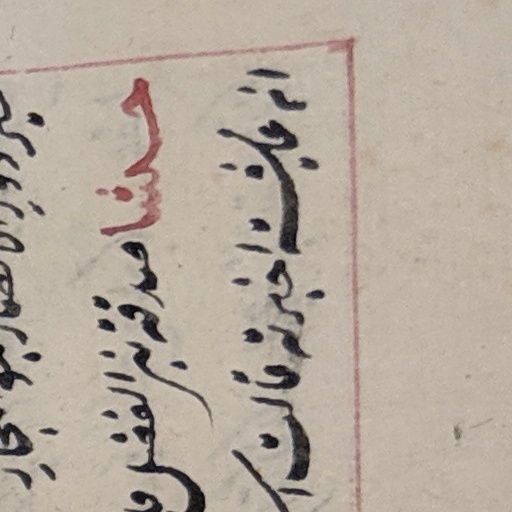 خير دور الانصار بنو النجار
حدثنا صدقة بن الفضل
ان عايشة اخبرته قالت